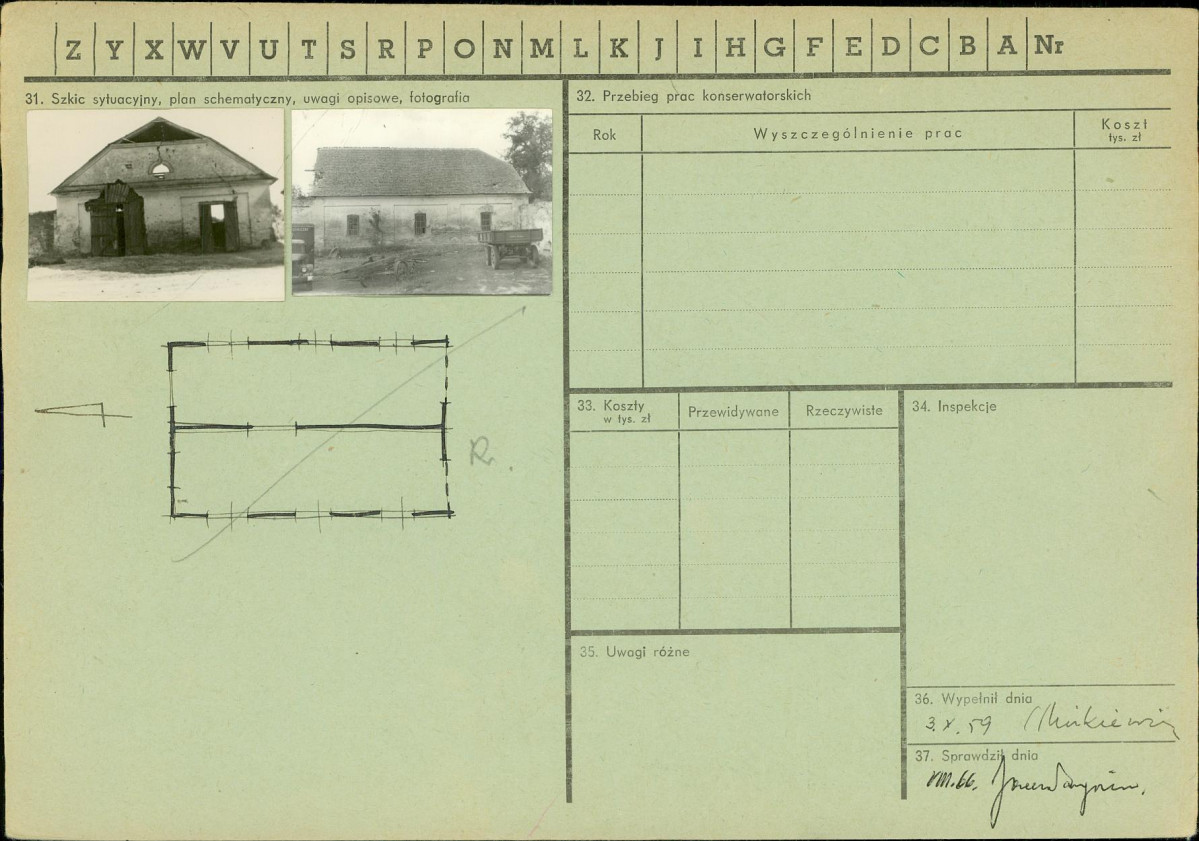 Z Y X W V U T S R P O N M L K J I H G F E D C B A Nr
31. Szkic sytuacyjny, plan schematyczny, uwagi opisowe, fotografia
32. Przebieg prac konserwatorskich
Rok
Wyszczególnienie prac
Koszt
tys. zł
33. Koszty
w tys. zł
Przewidywane
Rzeczywiste
34. Inspekcje
35. Uwagi różne
36. Wypełnił dnia
3.X.59
37. Sprawdził dnia
VIII.66.